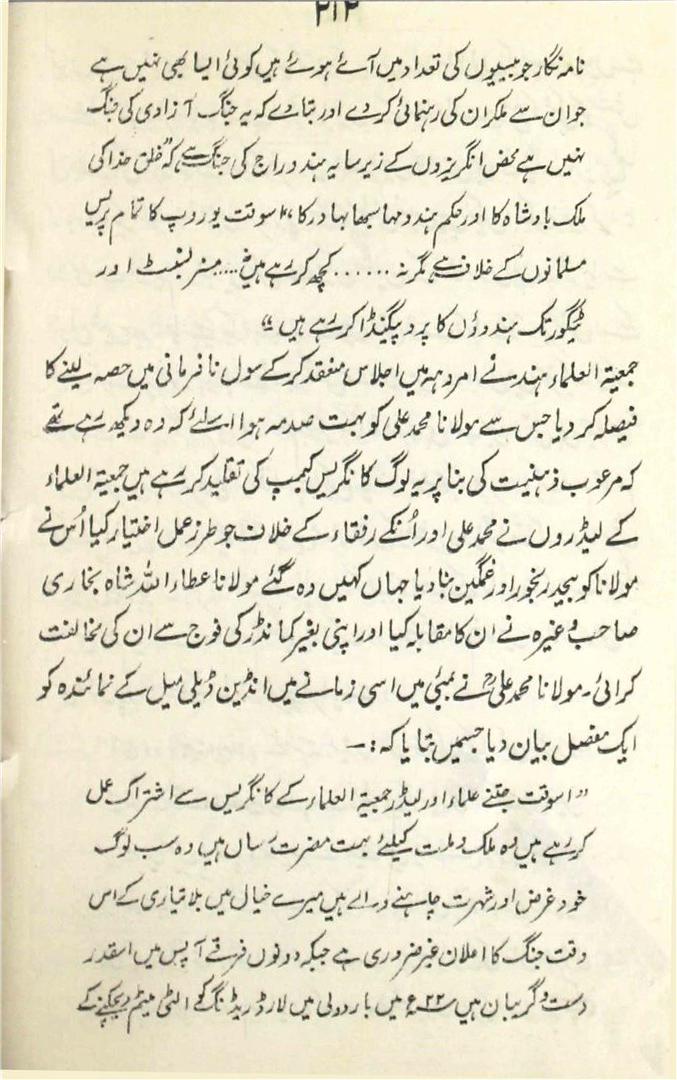 ۲۱۲
نامہ نگار جو بیسیوں کی تعداد میں آئے ہوئے ہیں کوئی ایسا بھی نہیں ہے
جو ان سے ملکر ان کی رہنمائی کر دے اور بتا دے کہ یہ جنگ آزادی کی جنگ
نہیں ہے محض انگریزوں کے زیر سایہ ہندو راج کی جنگ ہے کہ "خلق خدا کی
ملک بادشاہ کا اور حکم ہندو مہا سبھا بہادر کا" اسوقت یوروپ کا تمام پریس
مسلمانوں کے خلاف ہے مگر نہ ...... کچھ کر رہے ہیں نہ .... مسز بسنٹ اور
ٹیگور تک ہندوؤں کا پروپیگنڈا کر رہے ہیں"
جمعیۃ العلماء ہند نے امروہہ میں اجلاس منعقد کر کے سول نافرمانی میں حصہ لینے کا
فیصلہ کر دیا جس سے مولانا محمد علی کو بہت صدمہ ہوا اسلئے کہ وہ دیکھ رہے تھے
کہ مرعوب ذہنیت کی بنا پر یہ لوگ کانگریس کیمپ کی تقلید کر رہے ہیں جمعیۃ العلماء
کے لیڈروں نے محمد علی اور اُنکے رفقاء کے خلاف جو طرز عمل اختیار کیا اُس نے
مولانا کو بیحد رنجور اور غمگین بنا دیا جہاں کہیں وہ گئے مولانا عطاء اللہ شاہ بخاری
صاحب وغیرہ نے ان کا مقابلہ کیا اور اپنی بغیر کمانڈر کی فوج سے ان کی مخالفت
کرائی۔ مولانا محمد علیؒ نے بمبئی میں اسی زمانے میں انڈین ڈیلی میل کے نمائندہ کو
ایک مفصل بیان دیا جسمیں بتایا کہ:۔
"اسوقت جتنے علماء اور لیڈر جمعیۃ العلماء کے کانگریس سے اشتراک عمل
کر رہے ہیں وہ ملک و ملت کیلئے بہت مضرت رساں ہیں وہ سب لوگ
خود غرض اور شہرت چاہنے والے ہیں میرے خیال میں بلا تیاری کے اس
وقت جنگ کا اعلان غیر ضروری ہے جبکہ دونوں فرقے آپس میں اسقدر
دست و گریبان ہیں ۲۲ء میں باردولی میں لارڈ ریڈنگ کو الٹی میٹم دیچکنے کے